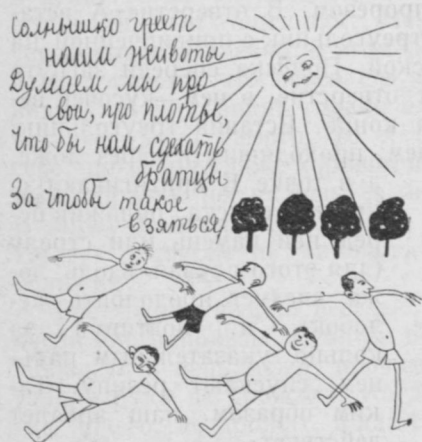 Солнышко греет
наши животы
Думаем мы про
свои, про плоты,
Что бы нам сделать
братцы
За чтобы такое
взяться